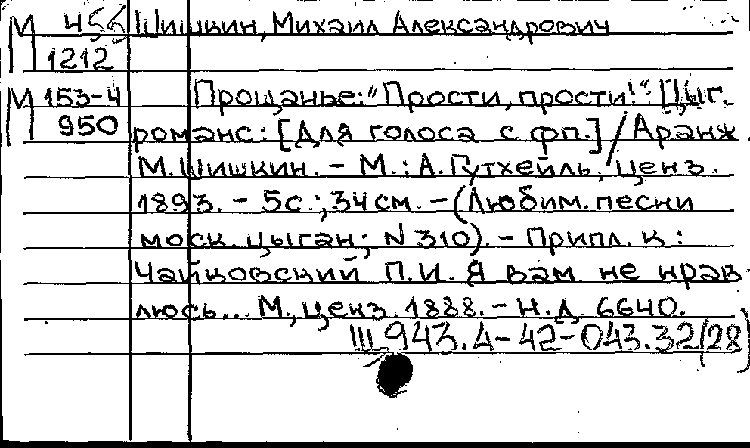 М 455 Шишкин, Михаил Александрович
1212
М 153-4 Прощанье: "Прости, прости!": Цыг.
950 романс: [Для голоса с фп.] / Аранж.
М. Шишкин. - М.: А. Гутхейль, ценз.
1893. - 5 с.; 34 см. - (Любим. песни
моск. цыган; N 310). - Припл. к:
Чайковский П.И. Я вам не нрав
люсь... М., ценз. 1888. - Н.д. 6640.
Ш 943.4-42-043.32(28)